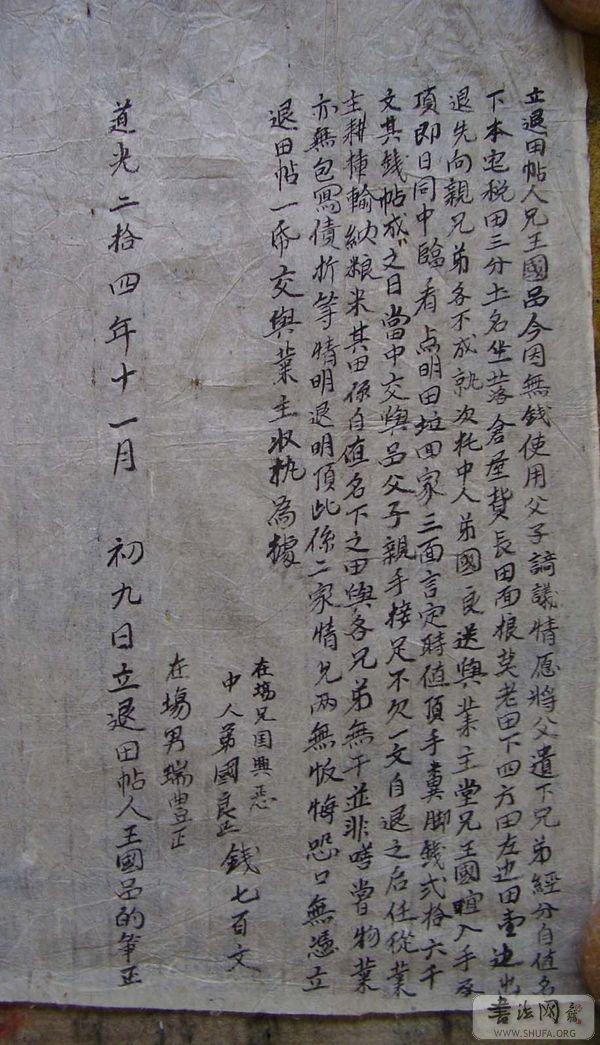 立退田帖人兄王國品今因無錢使用父子謪議情愿將父遺下兄弟經分自值名
下本宅税田三分土名坐落倉屋費長田面根莫老田下四方田左边田壹边出
退先向親兄弟各不成就次托中人弟國良送與業主堂兄王國暄入手承
項即日同中臨看点明田垃回家三面言定時值頂手糞脚錢弍拾六千
文其錢帖成之日當中交與品父子親手接足不欠一文自退之后任從業
主耕揀輸納粮米其田係自值名下之田與各兄弟無干並非嘗物業
亦無包寫債折等情明退明頂此係二家情允兩無恢悔恐口無憑立
退田帖一帋交與業主收执為據
在塲兄国興
中人弟國良 錢七百文
在塲男瑞豊
道光二拾四年十一月 初九日立退田帖人王國品的筆
書法网
WWW.SHUFA.ORG